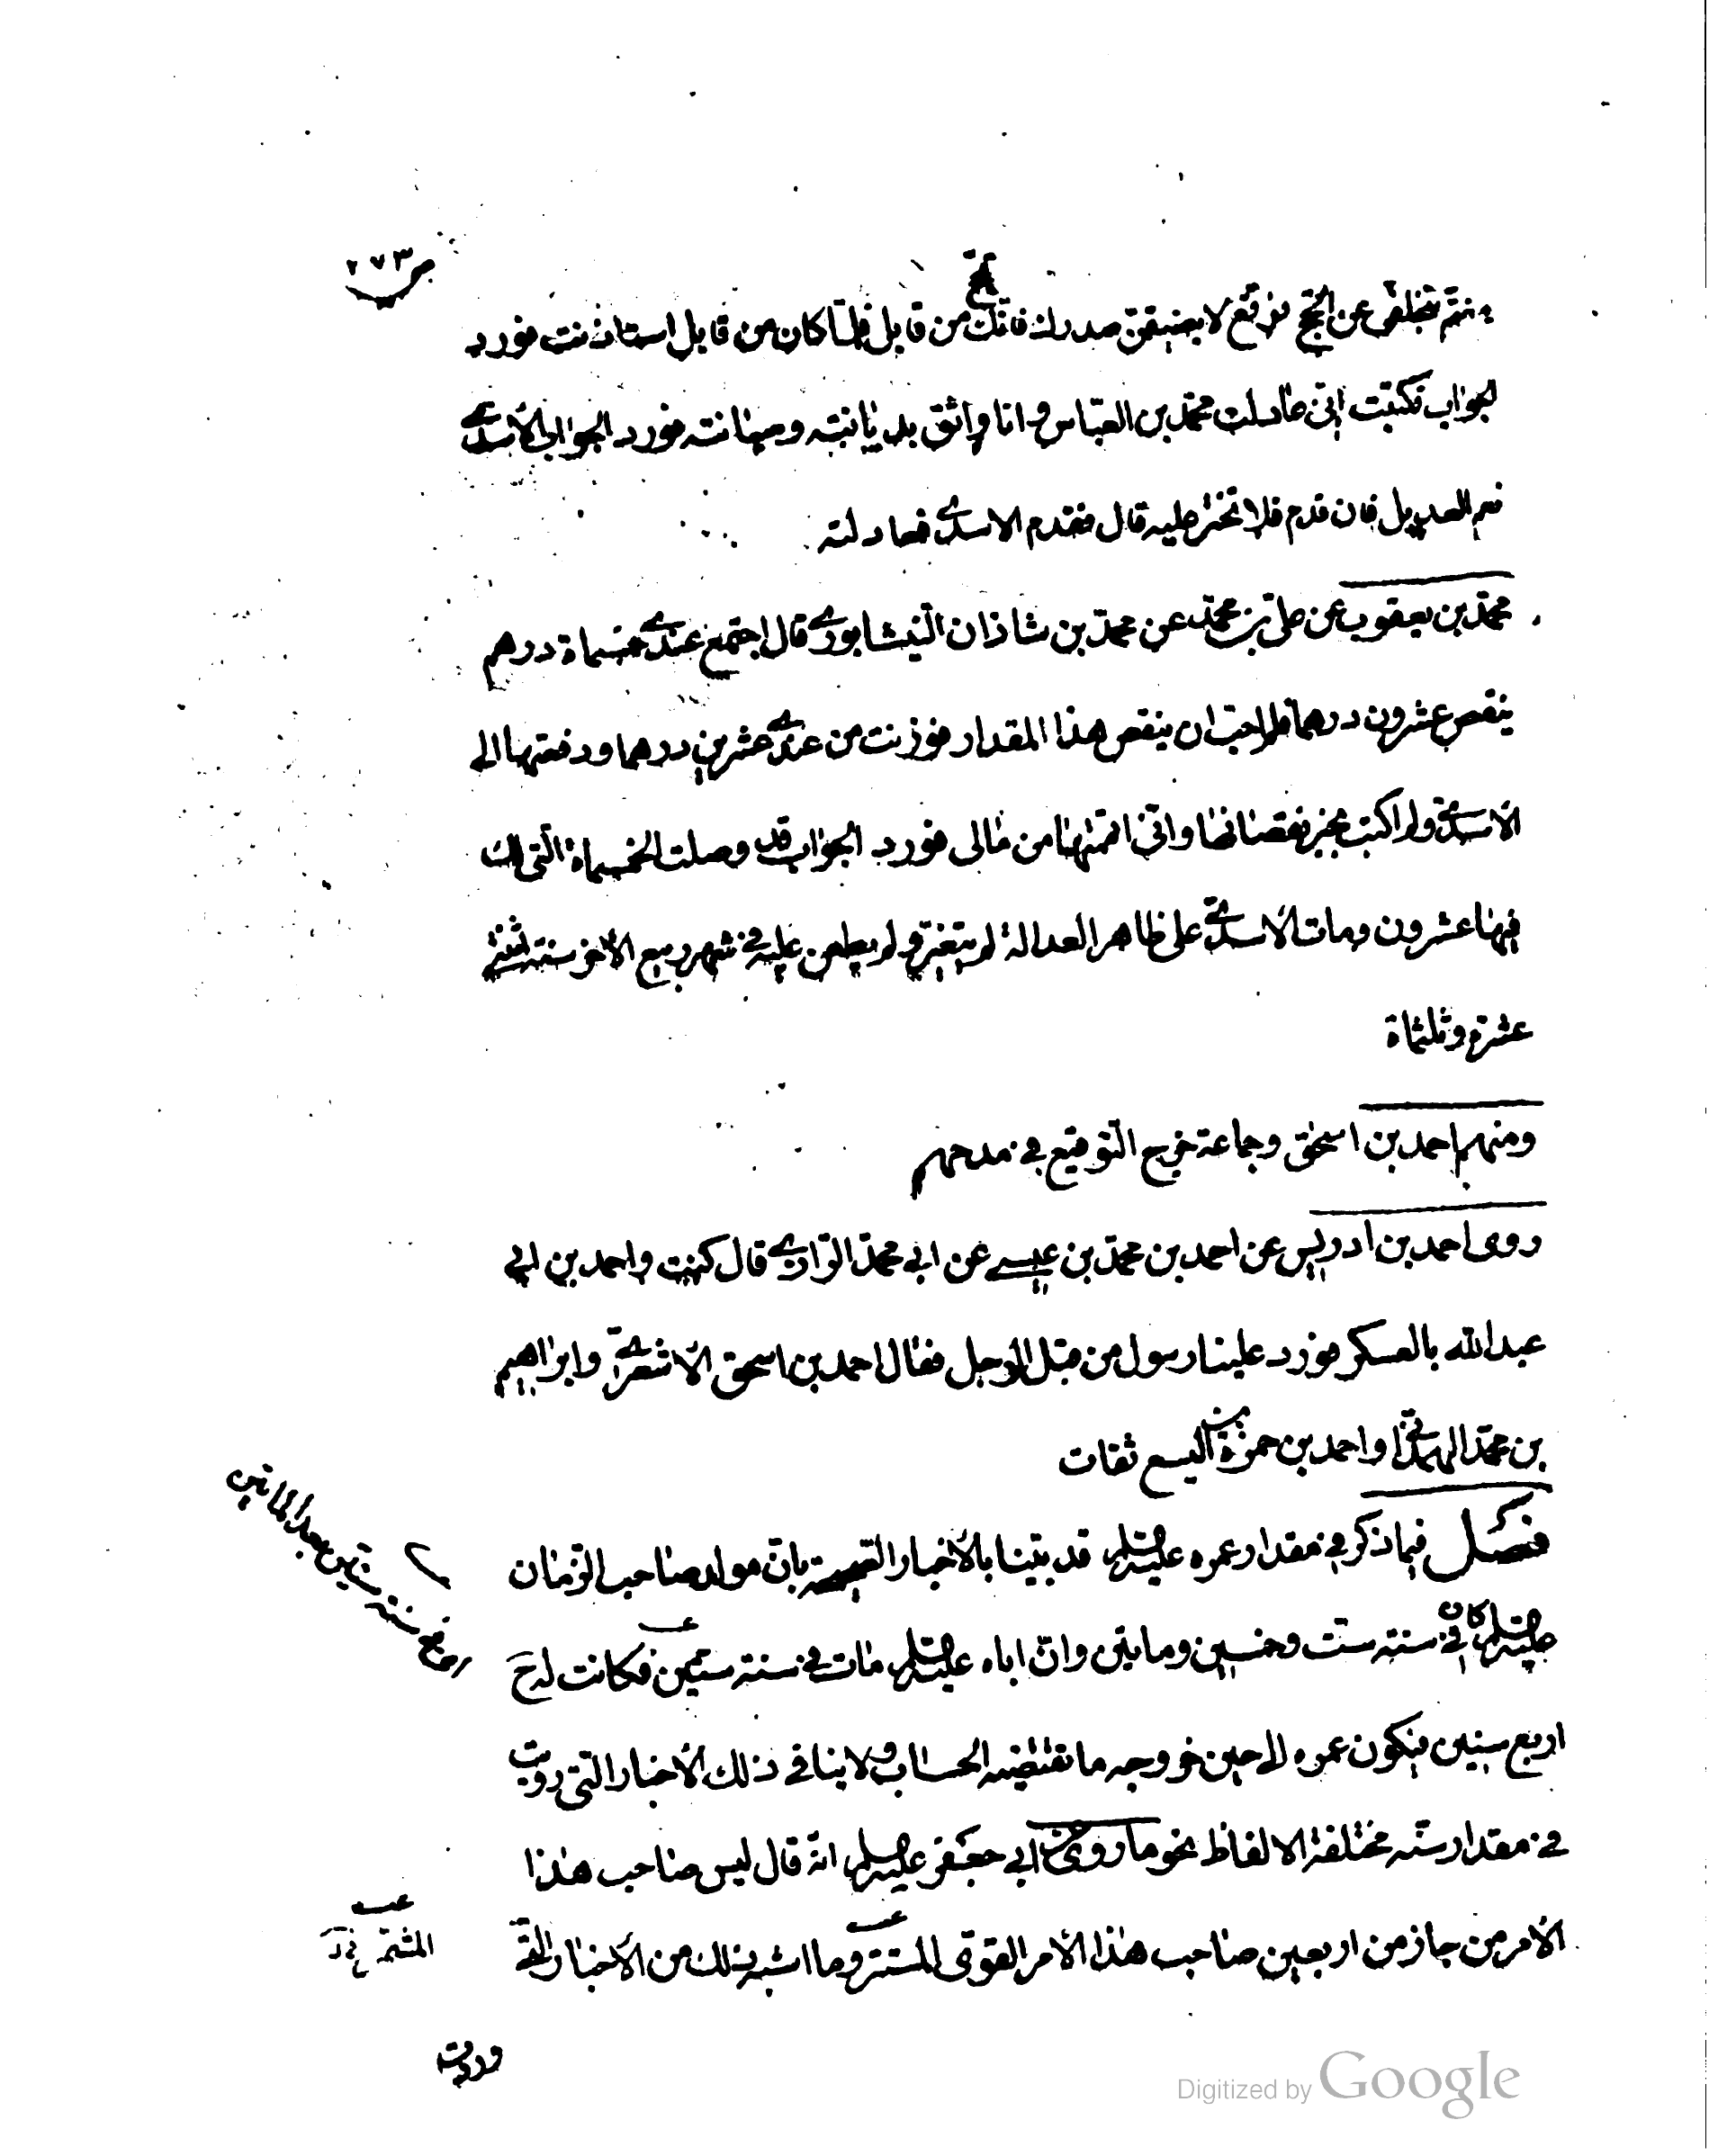 ص ٢٧٣
مغتم بتخلفي عن الحج فوقع لا يضيقن صدرك فانك تحج من قابل فلما كان من قابل استاذنت فورد
الجواب فكتبت اني عادلت محمد بن العباس وانا واثق بديانته وصيانته فورد الجواب الأسدي
نعم العديل فان قدم فلا تختر عليه قال فقدم الاسدي فعادلته
محمد بن يعقوب عن علي بن محمد عن محمد بن شاذان النيشابوري قال اجتمع عندي خمسماة درهم
ينقص عشرون درهما فلم احب ان ينقص هذا المقدار فوزنت من عندي عشرين درهما ودفعتها الى
الأسدي ولم اكتب بخبر نقصانها واني اتممتها من مالي فورد الجواب قد وصلت الخمسماة التي لك
فيها عشرون ومات الأسدي على ظاهر العدالة لم يتغير ولم يطعن عليه في شهر ربيع الآخر سنة اثنتي
عشرة وثلثماة
ومنهم احمد بن اسحق وجماعة خرج التوقيع في مدحهم
روى احمد بن ادريس عن احمد بن محمد بن عيسى عن ابي محمد الرازي قال كنت واحمد بن ابي
عبد الله بالعسكر فورد علينا رسول من قبل الرجل فقال احمد بن اسحق الأشعري وابراهيم
بن محمد الهمداني واحمد بن حمزة بن اليسع ثقات
فصل فيما ذكر في مقدار عمره عليه السلم قد بينا بالأخبار الصحيحة بان مولد صاحب الزمان
عليه السلم كان في سنة ست وخمسين ومايتين وان اباه عليه السلم مات في سنة ستين فكانت له ح
اربع سنين فيكون عمره الى حين خروجه ما يقتضيه الحساب ولا ينافي ذلك الأخبار التي رويت
في مقدار سنه مختلفة الالفاظ نحو ما روي عن ابي جعفر عليه السلم انه قال ليس صاحب هذا
الأمر من جاز من اربعين صاحب هذا الأمر القوي المستتر وما اشبه ذلك من الأخبار التي
المشمر
وردت